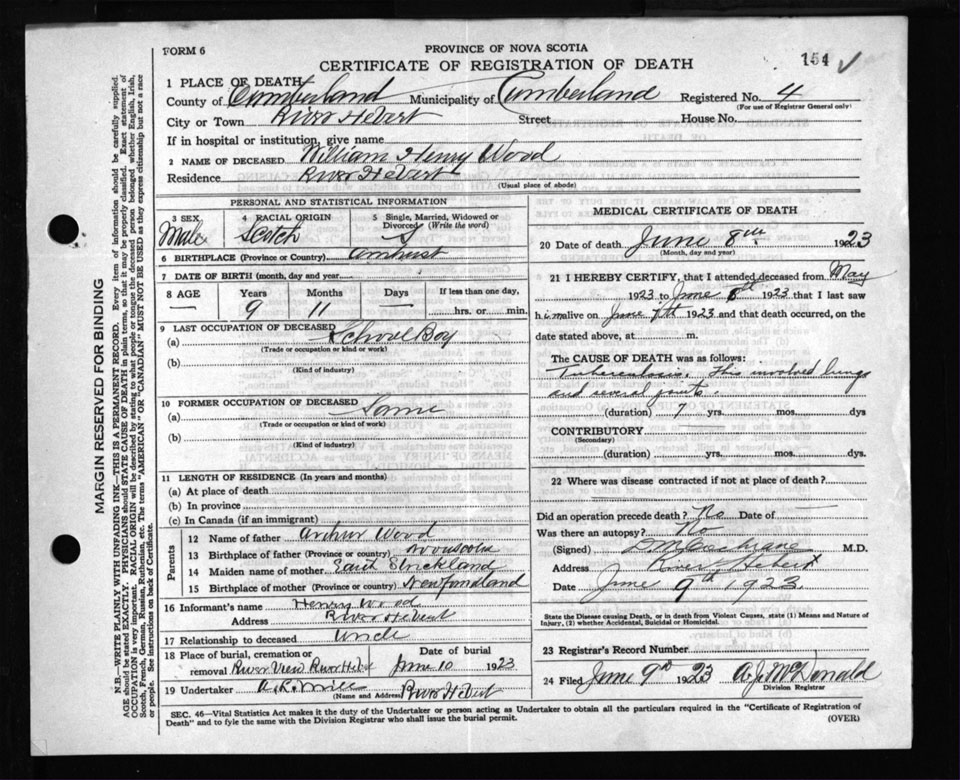 FORM 6
PROVINCE OF NOVA SCOTIA
CERTIFICATE OF REGISTRATION OF DEATH
154 ✓
1 PLACE OF DEATH
County of Cumberland Municipality of Cumberland Registered No. 4
(For use of Registrar General only)
City or Town River Hebert Street House No.
If in hospital or institution, give name
2 NAME OF DECEASED William Henry Wood
Residence River Hebert
(Usual place of abode)
PERSONAL AND STATISTICAL INFORMATION
3 SEX 4 RACIAL ORIGIN 5 Single, Married, Widowed or Divorced (Write the word)
Male Scotch S
6 BIRTHPLACE (Province or Country) Amhurst
7 DATE OF BIRTH (month, day and year)
8 AGE Years Months Days If less than one day,
9 11 — hrs. or min.
9 LAST OCCUPATION OF DECEASED
(a) School Boy
(Trade or occupation or kind or work)
(b)
(Kind of industry)
10 FORMER OCCUPATION OF DECEASED
(a) Same
(Trade or occupation or kind of work)
(b)
(Kind of industry)
11 LENGTH OF RESIDENCE (In years and months)
(a) At place of death
(b) In province
(c) In Canada (if an immigrant)
Parents
12 Name of father Arthur Wood
13 Birthplace of father (Province or country)
14 Maiden name of mother Strickland
15 Birthplace of mother (Province or country) Newfondland
16 Informant's name Henry Wood
Address River Hebert
17 Relationship to deceased Uncle
18 Place of burial, cremation or removal River View River Hebert
Date of burial June 10 1923
19 Undertaker River Hebert
(Name and Address)
MEDICAL CERTIFICATE OF DEATH
20 Date of death June 8th 1923
(Month, day and year)
21 I HEREBY CERTIFY, that I attended deceased from May
1923 to June 8th 1923 that I last saw
him alive on June 7th 1923 and that death occurred, on the
date stated above, at m.
The CAUSE OF DEATH was as follows:
Tuberculosis. This involved lungs
and several joints
(duration) 7 yrs. mos. dys
CONTRIBUTORY
(Secondary)
(duration) yrs. mos. dys.
22 Where was disease contracted if not at place of death?
Did an operation precede death? No Date of —
Was there an autopsy? No
(Signed) Cochrane M.D.
Address River Hebert
Date June 9th 1923
State the Disease causing Death, or in death from Violent Causes, state (1) Means and Nature of
Injury, (2) whether Accidental, Suicidal or Homicidal.
23 Registrar's Record Number
24 Filed June 9th 1923 A. J. McDonald
Division Registrar
SEC. 46—Vital Statistics Act makes it the duty of the Undertaker or person acting as Undertaker to obtain all the particulars required in the "Certificate of Registration of
Death" and to fyle the same with the Division Registrar who shall issue the burial permit.
(OVER)
MARGIN RESERVED FOR BINDING
N.B.—WRITE PLAINLY WITH UNFADING INK—THIS IS A PERMANENT RECORD. Every item of information should be carefully supplied.
AGE should be stated EXACTLY. PHYSICIANS should STATE CAUSE OF DEATH in plain terms, so that it may be properly classified. Exact statement of
OCCUPATION is very important. RACIAL ORIGIN will be described by stating to what people or tongue the deceased person belonged whether English, Irish,
Scotch, French, German, Russian, Ruthenian, etc. The terms "AMERICAN" OR "CANADIAN" MUST NOT BE USED as they express citizenship but not a race
or people. See instructions on back of Certificate.